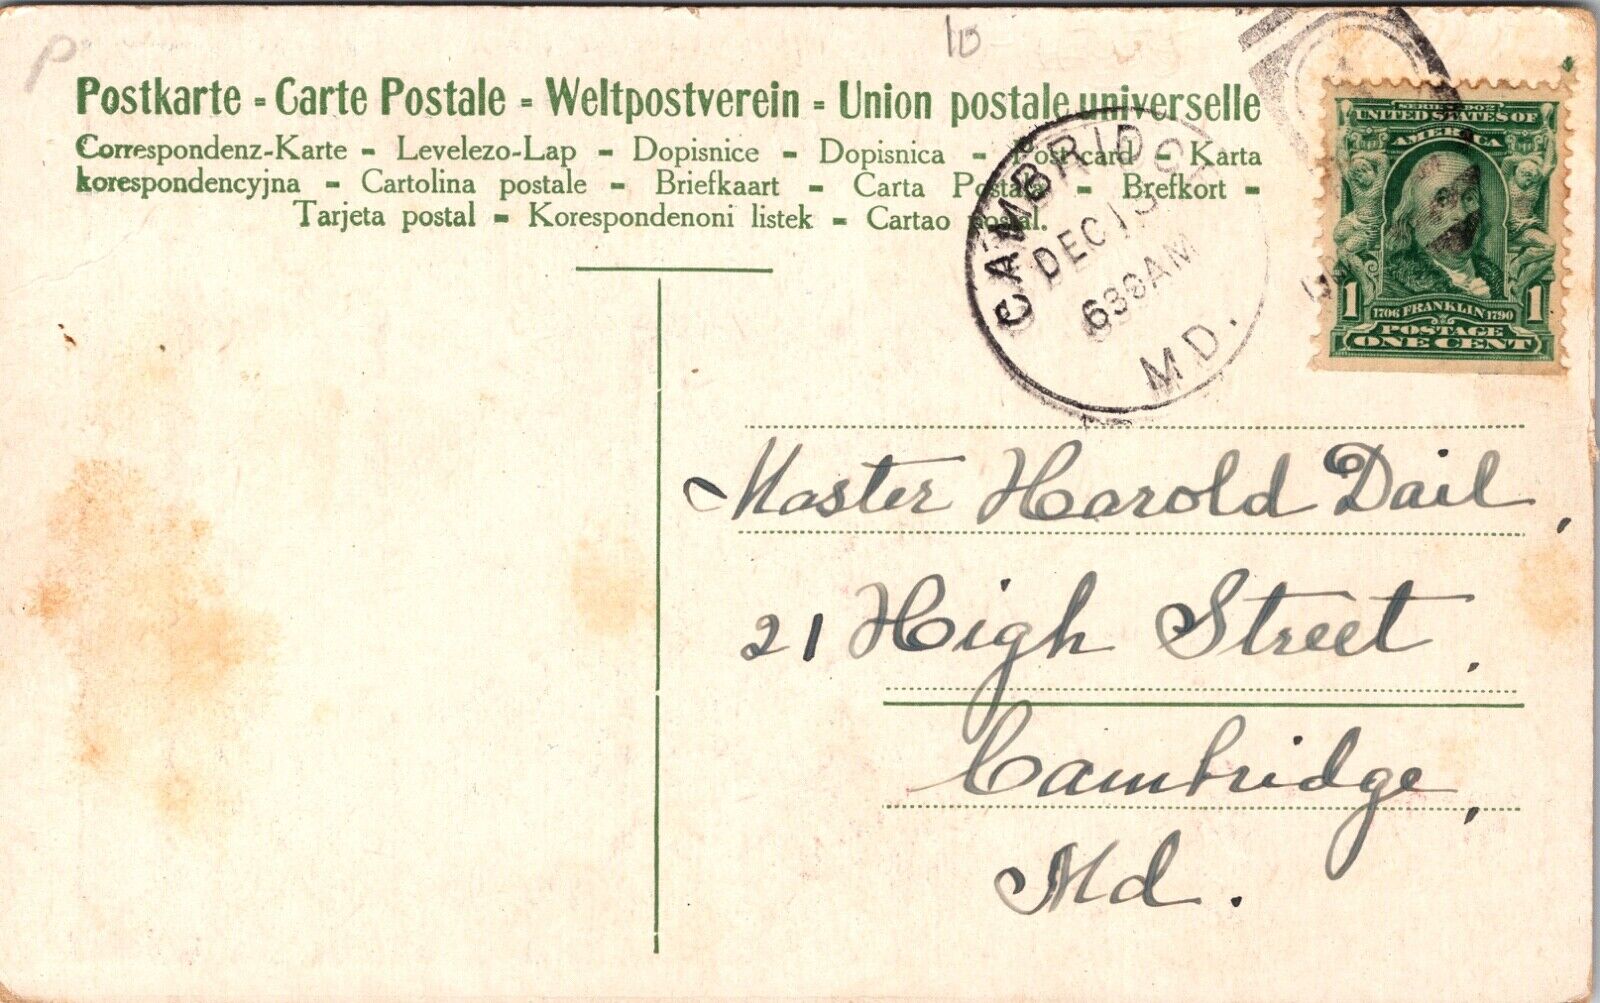 P
10
Postkarte - Carte Postale - Weltpostverein - Union postale universelle
Correspondenz-Karte - Levelezo-Lap - Dopisnice - Dopisnica - Post card - Karta
korespondencyjna - Cartolina postale - Briefkaart - Carta Postala - Brefkort -
Tarjeta postal - Korespondenoni listek - Cartao postal.
CAMBRIDGE
DEC 13
630AM
MD.
SERIES 1902
UNITED STATES OF
AMERICA
1 1
1706 FRANKLIN 1790
POSTAGE
ONE CENT
Master Harold Dail,
21 High Street.
Cambridge,
Md.